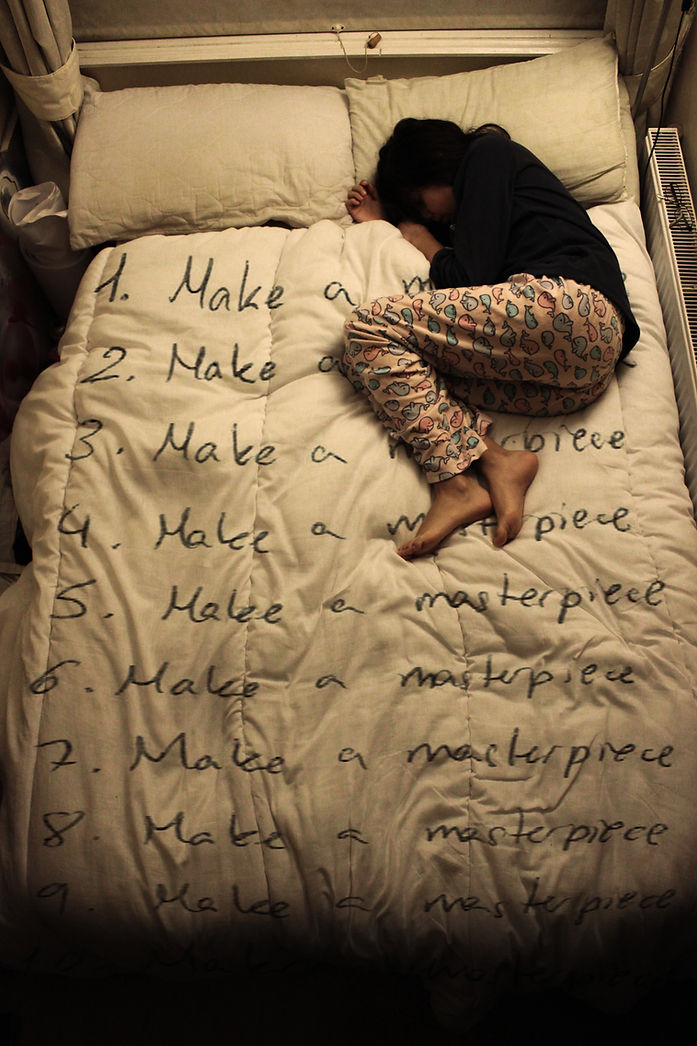 1. Make a
2. Make a
3. Make a
4. Make a piece
5. Make a masterpiece
6. Make a masterpiece
7. Make a masterpiece
8. Make a masterpiece
9. Make a masterpiece
10. Make a masterpiece